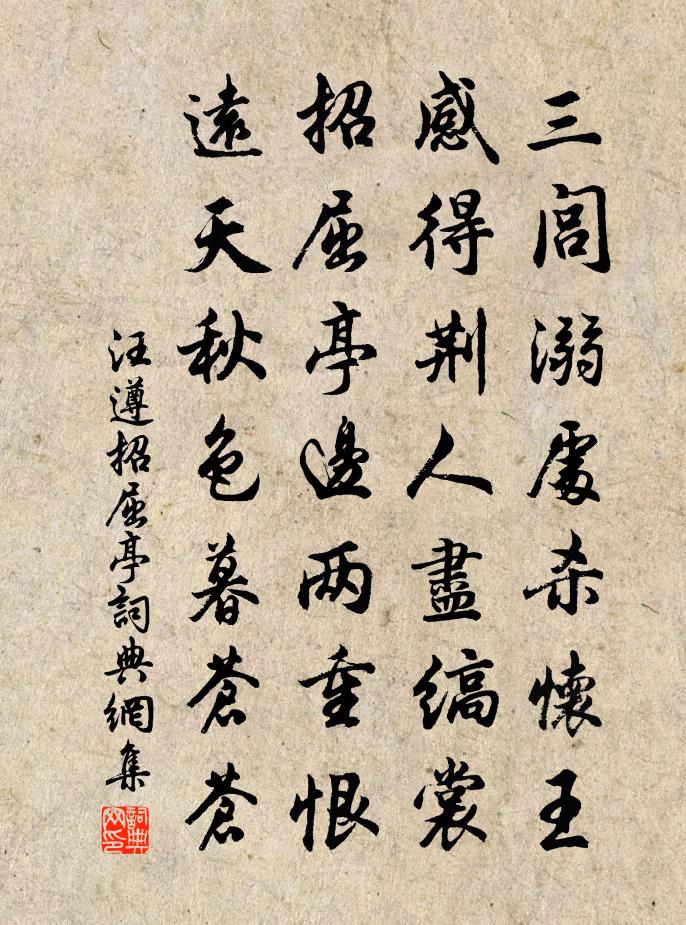 三閭溺處杀懷王
感得荆人盡縞裳
招屈亭邊两重恨
遠天秋色暮蒼蒼
汪遵招屈亭詞典網集
詞典
网印